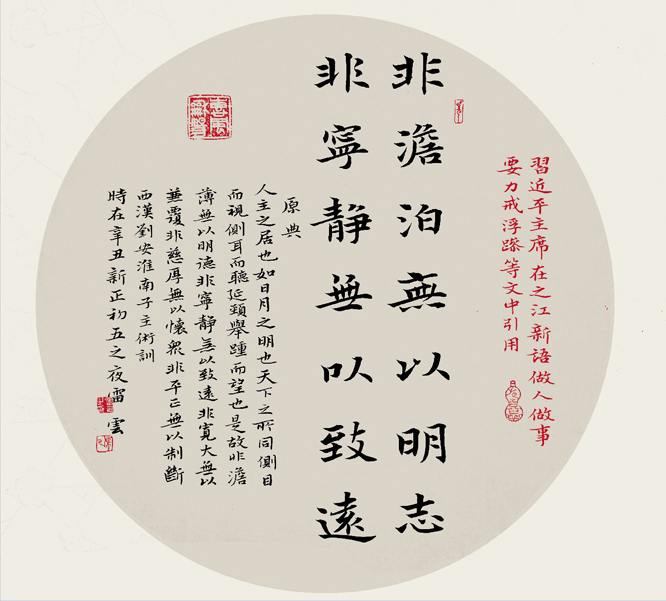 習近平主席在之江新語做人做事
要力戒浮躁等文中引用
非澹泊無以明志
非寧靜無以致遠
原典
人主之居也如日月之明也天下之所同側目
而視側耳而聽延頸舉踵而望也是故非澹
薄無以明德非寧靜無以致遠非寬大無以
兼覆非慈厚無以懷眾非平正無以制斷
西漢劉安淮南子主術訓
時在辛丑新正初五之夜雷雲